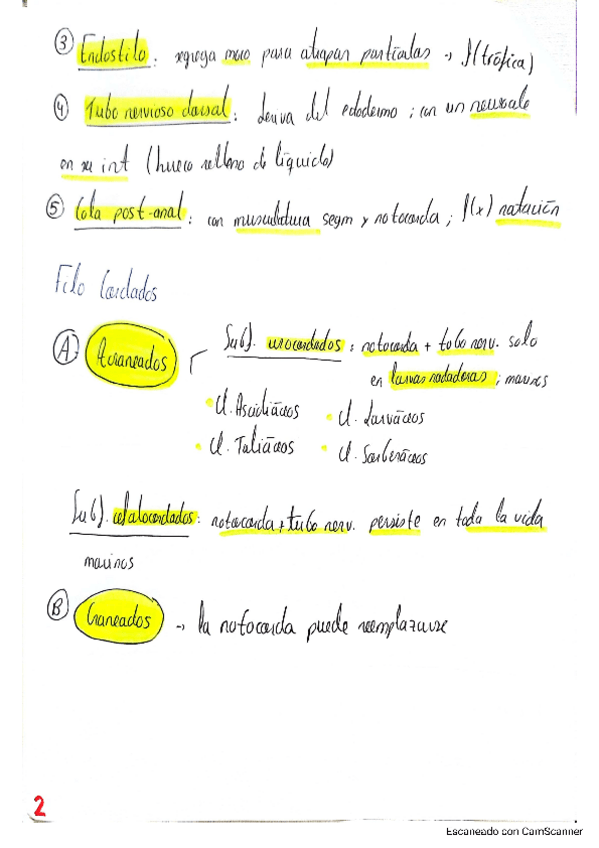 ③ Endostilo: segrega moco para atrapar partículas → f(trófica)
④ Tubo nervioso dorsal: deriva del ectodermo; con un neurocele
en su int (hueco relleno de líquido)
⑤ Cola post-anal: con musculatura segm y notocorda; f(x) natación
Filo Cordados
Ⓐ Acraneados
Subf. urocordados: notocorda + tubo nerv. solo
en larvas nadadoras; marinos
• Cl. Ascidiáceos • Cl. Larváceos
• Cl. Taliáceos • Cl. Sorberáceos
Subf. cefalocordados: notocorda + tubo nerv. persiste en toda la vida
marinos
Ⓑ Craneados → la notocorda puede reemplazarse
2
Escaneado con CamScanner